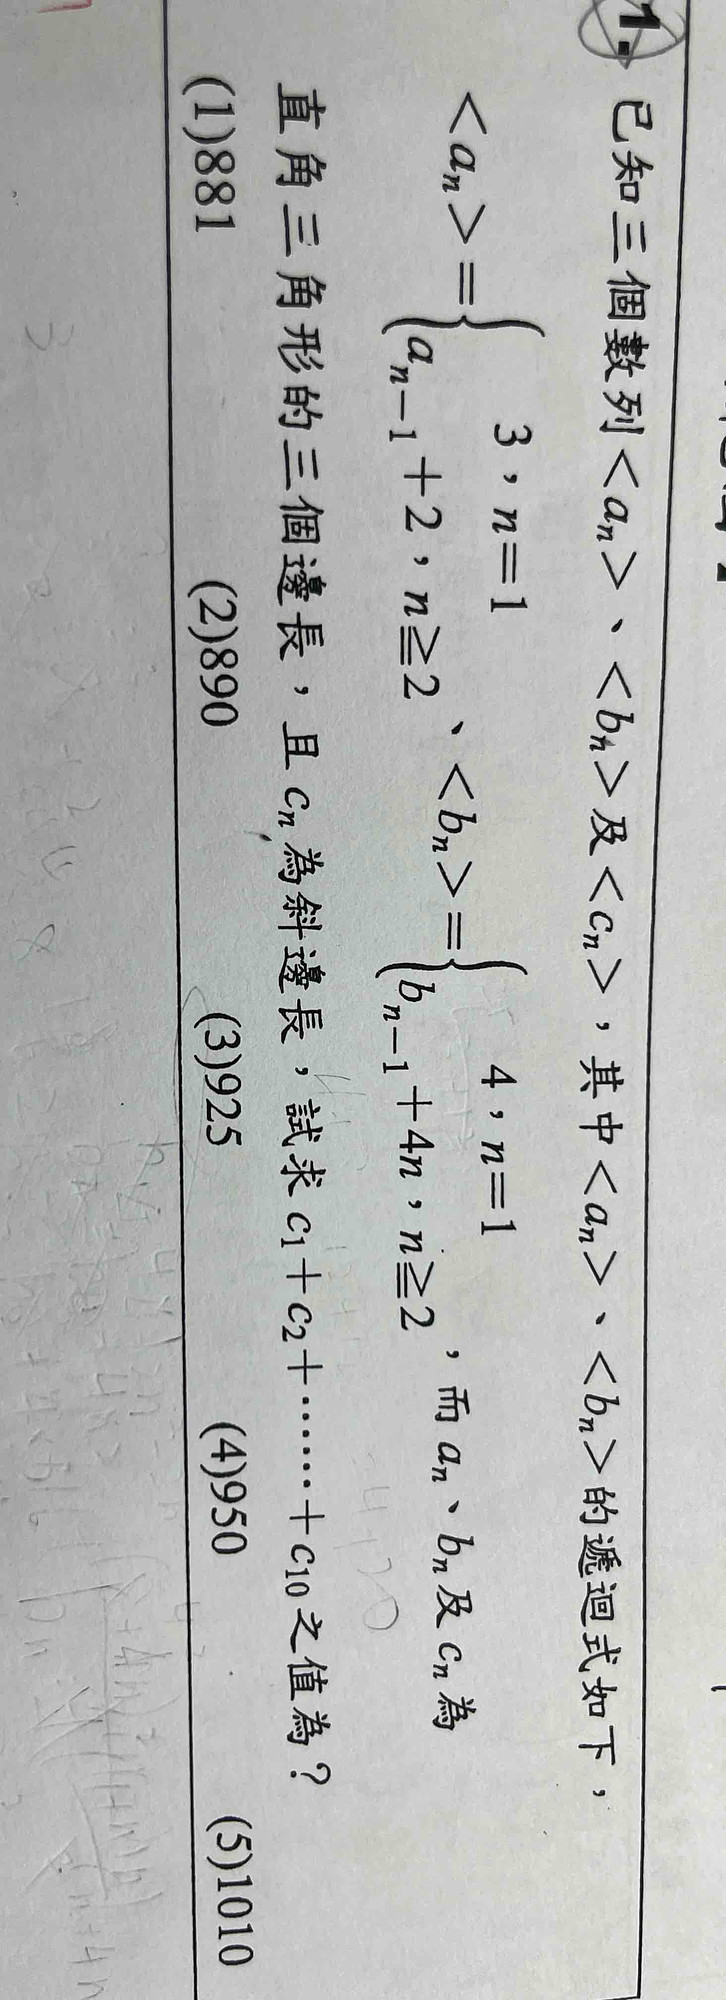 1. 已知三個數列<aₙ>、<bₙ>及<cₙ>，其中<aₙ>、<bₙ>的遞迴式如下，
<aₙ>={3，n=1
aₙ₋₁+2，n≧2、<bₙ>={4，n=1
bₙ₋₁+4n，n≧2，而aₙ、bₙ及cₙ為
直角三角形的三個邊長，且cₙ為斜邊長，試求c₁+c₂+……+c₁₀之值為？
(1)881 (2)890 (3)925 (4)950 (5)1010